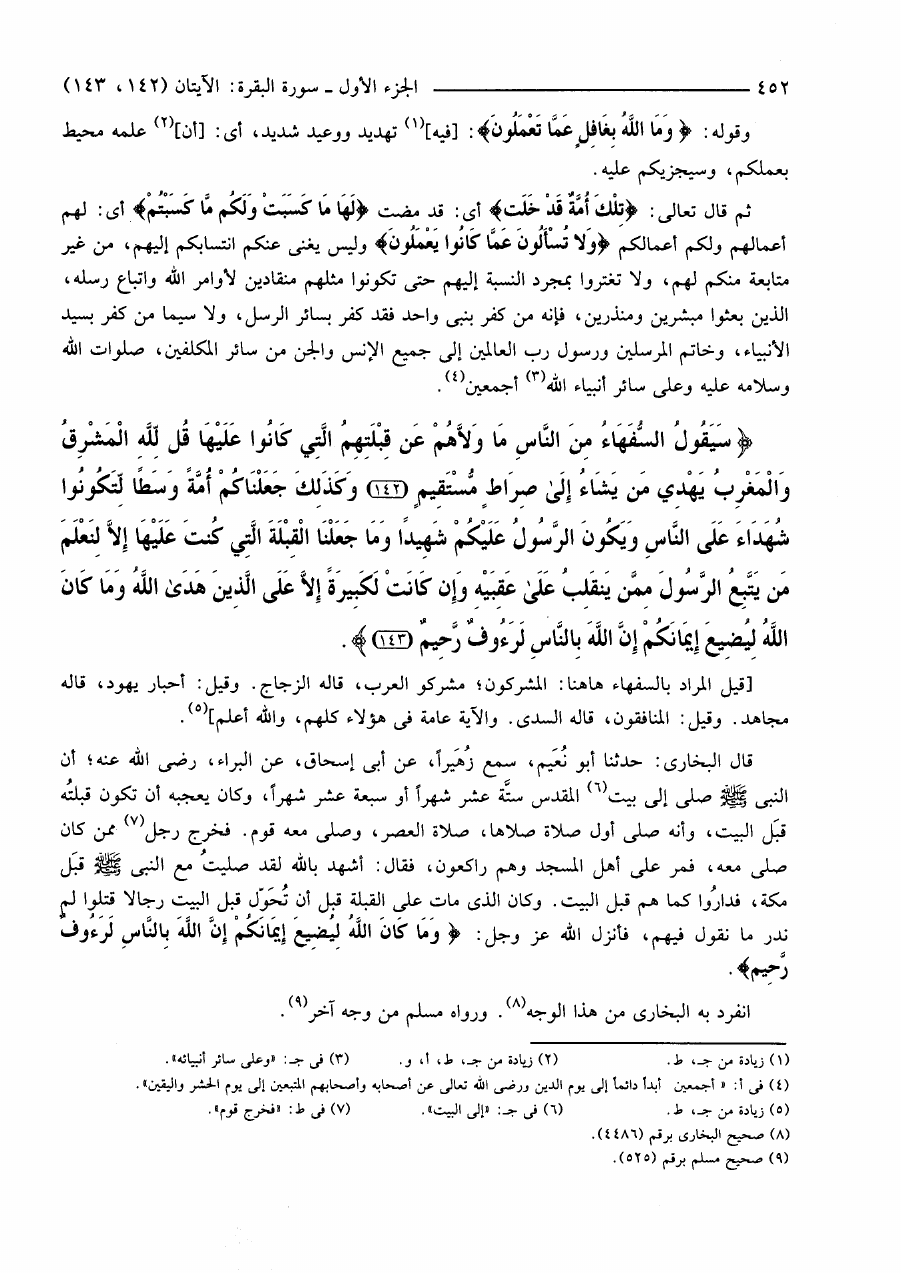 ٤٥٢ ــــــــــــــــــــــــــــــــــــــــ الجزء الأول ـ سورة البقرة: الآيتان (١٤٢، ١٤٣)
وقوله: ﴿ وَمَا اللَّهُ بِغَافِلٍ عَمَّا تَعْمَلُونَ﴾: [فيه](١) تهديد ووعيد شديد، أى: [أن](٢) علمه محيط
بعملكم، وسيجزيكم عليه.
ثم قال تعالى: ﴿تِلْكَ أُمَّةٌ قَدْ خَلَت﴾ أى: قد مضت ﴿لَهَا مَا كَسَبَتْ وَلَكُم مَّا كَسَبْتُم﴾ أى: لهم
أعمالهم ولكم أعمالكم ﴿وَلا تُسْأَلُونَ عَمَّا كَانُوا يَعْمَلُونَ﴾ وليس يغنى عنكم انتسابكم إليهم، من غير
متابعة منكم لهم، ولا تغتروا بمجرد النسبة إليهم حتى تكونوا مثلهم منقادين لأوامر الله واتباع رسله،
الذين بعثوا مبشرين ومنذرين، فإنه من كفر بنبى واحد فقد كفر بسائر الرسل، ولا سيما من كفر بسيد
الأنبياء، وخاتم المرسلين ورسول رب العالمين إلى جميع الإنس والجن من سائر المكلفين، صلوات الله
وسلامه عليه وعلى سائر أنبياء الله(٣) أجمعين(٤).
﴿ سَيَقُولُ السُّفَهَاءُ مِنَ النَّاسِ مَا وَلاَّهُمْ عَن قِبْلَتِهِمُ الَّتِي كَانُوا عَلَيْهَا قُل لِّلَّهِ الْمَشْرِقُ
وَالْمَغْرِبُ يَهْدِي مَن يَشَاءُ إِلَىٰ صِرَاطٍ مُّسْتَقِيمٍ (١٤٢) وَكَذَلِكَ جَعَلْنَاكُمْ أُمَّةً وَسَطًا لِّتَكُونُوا
شُهَدَاءَ عَلَى النَّاسِ وَيَكُونَ الرَّسُولُ عَلَيْكُمْ شَهِيدًا وَمَا جَعَلْنَا الْقِبْلَةَ الَّتِي كُنتَ عَلَيْهَا إِلاَّ لِنَعْلَمَ
مَن يَتَّبِعُ الرَّسُولَ مِمَّن يَنقَلِبُ عَلَىٰ عَقِبَيْهِ وَإِن كَانَتْ لَكَبِيرَةً إِلاَّ عَلَى الَّذِينَ هَدَى اللَّهُ وَمَا كَانَ
اللَّهُ لِيُضِيعَ إِيمَانَكُمْ إِنَّ اللَّهَ بِالنَّاسِ لَرَءُوفٌ رَّحِيمٌ (١٤٣) ﴾.
[قيل المراد بالسفهاء هاهنا: المشركون؛ مشركو العرب، قاله الزجاج. وقيل: أحبار يهود، قاله
مجاهد. وقيل: المنافقون، قاله السدى. والآية عامة فى هؤلاء كلهم، والله أعلم](٥).
قال البخارى: حدثنا أبو نُعَيم، سمع زُهَيراً، عن أبى إسحاق، عن البراء، رضى الله عنه؛ أن
النبى ﷺ صلى إلى بيت(٦) المقدس ستَّة عشر شهراً أو سبعة عشر شهراً، وكان يعجبه أن تكون قبلتُه
قبَل البيت، وأنه صلى أول صلاة صلاها، صلاة العصر، وصلى معه قوم. فخرج رجل(٧) ممن كان
صلى معه، فمر على أهل المسجد وهم راكعون، فقال: أشهد بالله لقد صليتُ مع النبى ﷺ قبَل
مكة، فدارُوا كما هم قبل البيت. وكان الذى مات على القبلة قبل أن تُحَوّل قبل البيت رجالا قتلوا لم
ندر ما نقول فيهم، فأنزل الله عز وجل: ﴿ وَمَا كَانَ اللَّهُ لِيُضِيعَ إِيمَانَكُمْ إِنَّ اللَّهَ بِالنَّاسِ لَرَءُوفٌ
رَّحِيم﴾.
انفرد به البخارى من هذا الوجه(٨). ورواه مسلم من وجه آخر(٩).
(١) زيادة من جـ، ط. (٢) زيادة من جـ، ط، أ، و. (٣) فى جـ: «وعلى سائر أنبيائه».
(٤) فى أ: « أجمعين أبداً دائماً إلى يوم الدين ورضى الله تعالى عن أصحابه وأصحابهم المتبعين إلى يوم الحشر واليقين».
(٥) زيادة من جـ، ط. (٦) فى جـ: «إلى البيت». (٧) فى ط: «فخرج قوم».
(٨) صحيح البخارى برقم (٤٤٨٦).
(٩) صحيح مسلم برقم (٥٢٥).